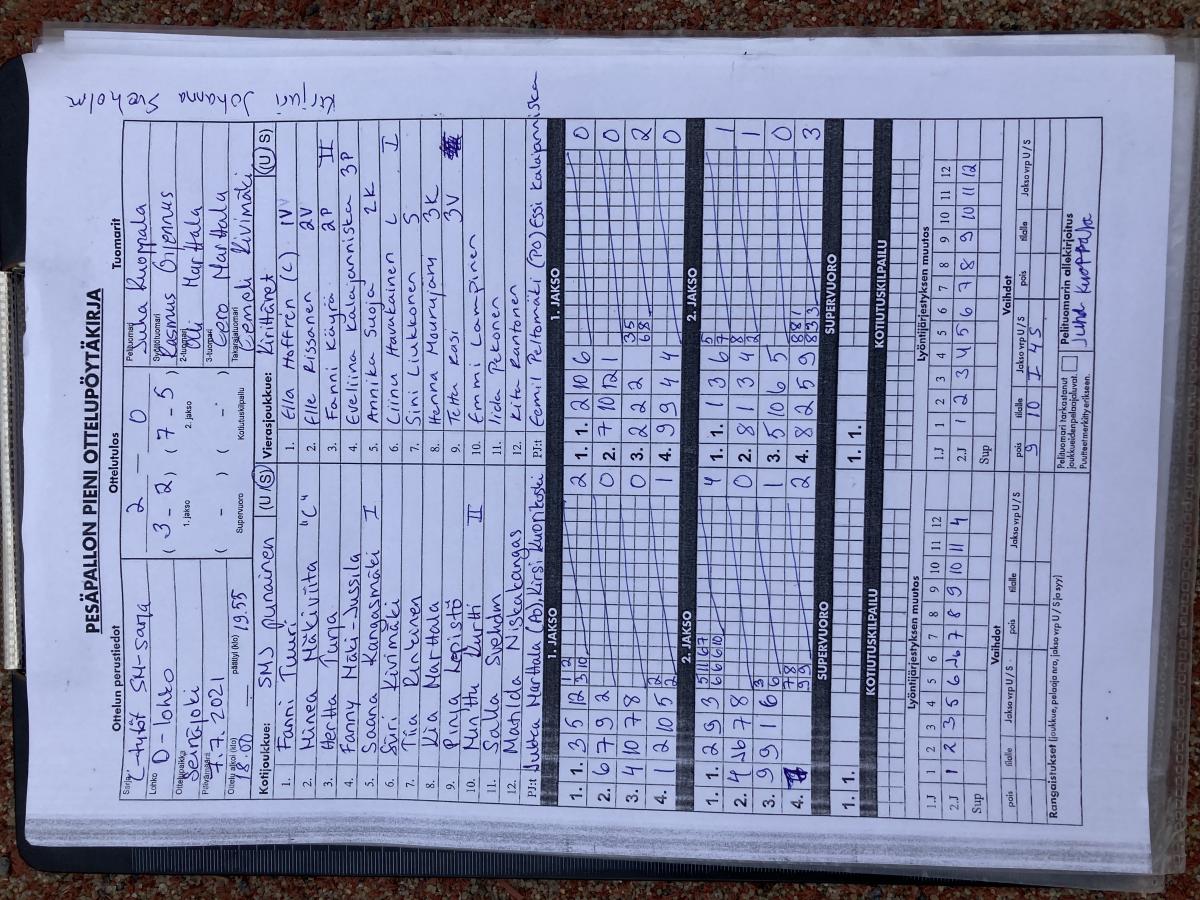 PESÄPALLON PIENI OTTELUPÖYTÄKIRJA
Ottelun perustiedot
Ottelutulos
Tuomarit
Sarja: C-tytöt SM-sarja
Lohko D-lohko
Ottelupaikka Seinäjoki
Päivämäärä 7.7.2021
Ottelu alkoi (klo) 18.00 päättyi (klo) 19.55
2 - 0
( 3 - 2 ) ( 7 - 5 )
1. jakso 2. jakso
( - ) ( - )
Supervuoro Kotiutuskilpailu
Pelituomari Juha Kuoppala
Syöttötuomari Rasmus
2-tuomari Olli Marttala
3-tuomari Eero Marttala
Takarajatuomari Eemeli Kivimäki
Kirjuri Johanna Sveholm
Kotijoukkue: SMJ punainen (U/S)
1. Fanni Tuuri
2. Minea Mäkiviita "C"
3. Hertta Turja
4. Fanny Mäki-Jussila
5. Saana Kangasmäki I
6. Siiri Kivimäki
7. Tiia Rintanen
8. Kia Marttala
9. Pinja Lepistö
10. Minttu Kurtti II
11. Salla Sveholm
12. Matilda Niskakangas
PJ:t Jukka Marttala (Ao), Kirsi Kuorikoski
Vierasjoukkue: Kirittäret (U/S)
1. Ella Hoffrén (C) 1V
2. Elle Rissanen 2V
3. Fanni Käyrä 2P II
4. Eveliina Kalajanniska 3P
5. Annika Suoja 2K
6. Liina Havukainen L I
7. Sini Liukkonen S
8. Henna Mourujärvi 3K
9. Tetta Rasi 3V
10. Emmi Lampinen
11. Iida Pekonen
12. Kita Rantonen
PJ:t Eemil Peltomäki (PO) Essi Kalajanniska
1. JAKSO
1. 1. 3 5 12 2
2. 6 7 9 2 0
3. 4 10 7 8 0
4. 1 2 10 5 1
2. JAKSO
1. 1. 2 9 3 4
2. 4 7 8 0
3. 9 9 1 6 1
4. 2
SUPERVUORO
1. 1.
KOTIUTUSKILPAILU
1. JAKSO
1. 1. 2 10 6 0
2. 7 10 12 1 0
3. 2 2 2 2
4. 9 9 4 4 0
2. JAKSO
1. 1. 1 3 6 1
2. 8 1 3 4 1
3. 5 10 6 5 0
4. 8 2 5 9 3
SUPERVUORO
1. 1.
KOTIUTUSKILPAILU
Lyöntijärjestyksen muutos
1.J 1 2 3 4 5 6 7 8 9 10 11 12
2.J 1 2 3 5 6 7 8 9 10 11 4
Sup
Vaihdot
pois tilalle Jakso vrp U / S pois tilalle Jakso vrp U / S
Rangaistukset (joukkue, pelaaja nro, jakso vrp U / S ja syy)
Lyöntijärjestyksen muutos
1.J 1 2 3 4 5 6 7 8 9 10 11 12
2.J 1 2 3 4 5 6 7 8 9 10 11 12
Sup
Vaihdot
pois tilalle Jakso vrp U / S pois tilalle Jakso vrp U / S
9 10 I 4S
Pelituomari tarkastanut
joukkueiden pelaajaluvat.
Puutteet merkitty erikseen.
Pelituomarin allekirjoitus
Juha Kuoppala